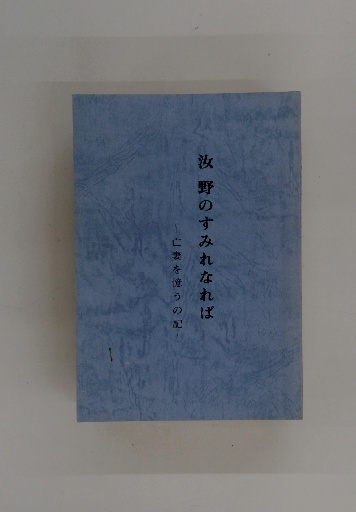 汝 野のすみれなれば
—亡妻を憶うの記—